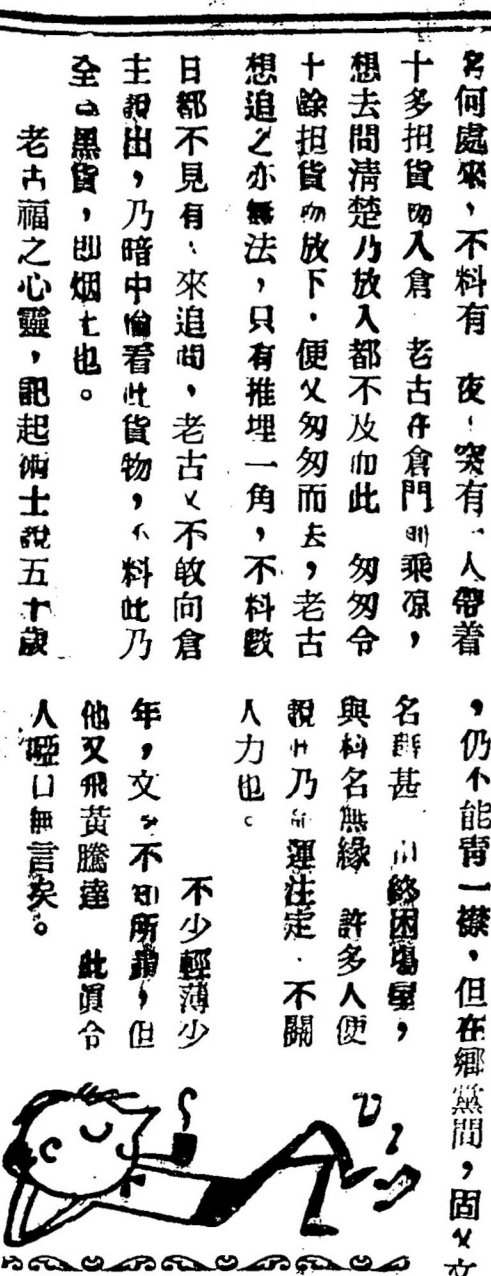 何處來，不料有 夜！突有一人帶着
十多担貨物入倉 老古在倉門前乘凉，
想去問清楚乃放入都不及而此 匆匆令
十餘担貨物放下．便又匆匆而去，老古
想追之亦無法，只有推埋一角，不料數
日都不見有、來追問，老古又不敢向倉
主說出，乃暗中偷看此貨物，不料此乃
全 黑貨，即烟土也。
老古福之心靈，記起術士說五十歲
，仍不能青一襟，但在鄉黨間，固又文
名 甚 終困場屋，
與科名無緣 許多人便
說此乃命運注定．不關
人力也。
不少輕薄少
年，文 不知所謂，但
他又飛黃騰達 此眞令
人啞口無言矣。